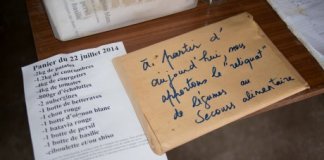 Panier du 22 juillet 2014
-4kg de patates
-1.2kg de concombres
-2kg de courgettes
-2kg de tomates
-2 aubergines
-1 botte de betteraves
-1 chou rouge
-1 botte d'oignon blanc
-1 batavia rouge
-1 botte de persil
-1 botte de basilic
-ciboulette et/ou shiso
à partir d'
aujourd'hui nous
apportons le "reliquat"
de légumes au
Secours alimentaire